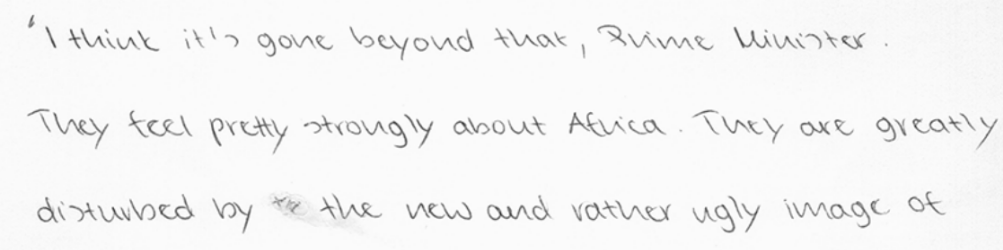 'I think it's gone beyond that, Prime Minister.
They feel pretty strongly about Africa. They are greatly
disturbed by the the new and rather ugly image of